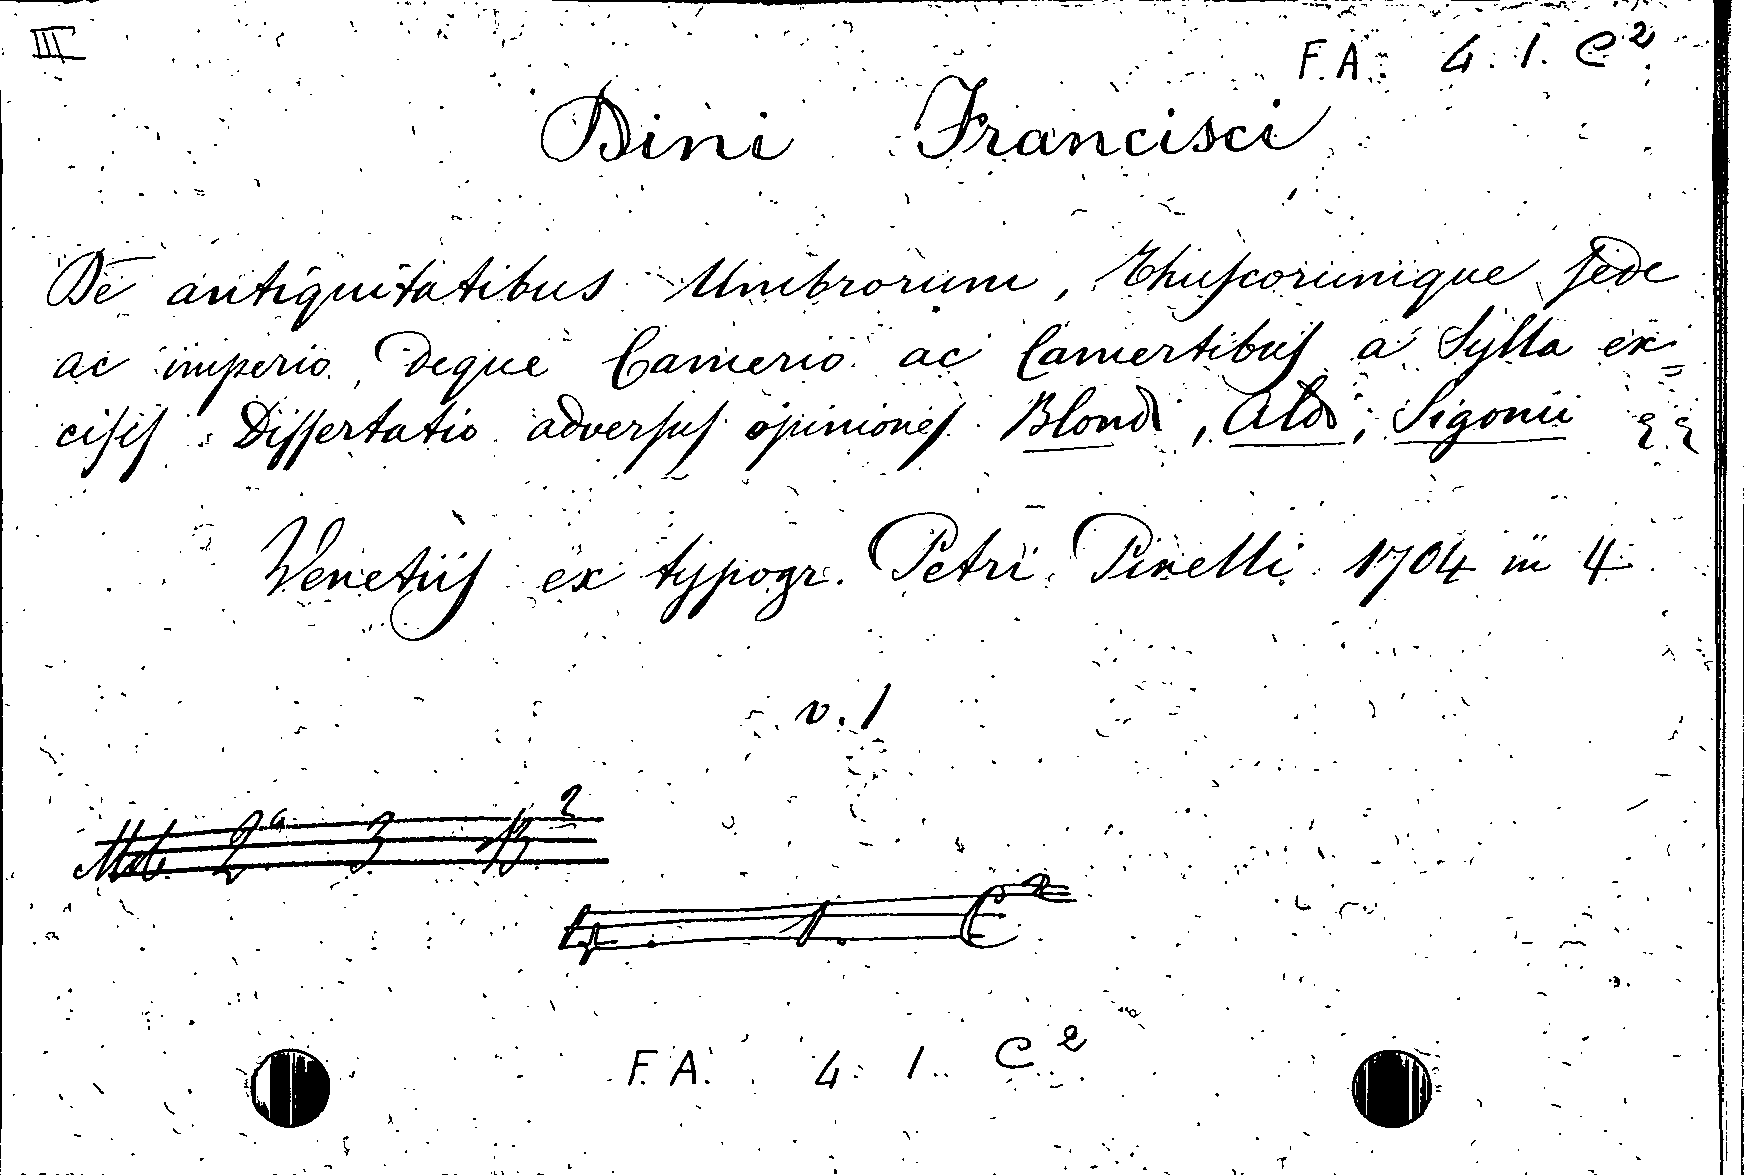 III
F. A. 4. 1. C²
Dini Francisci
De antiquitatibus Umbrorum, Thuscorumque sede
ac imperio, deque Camerio ac Camertibus a Sylla ex=
cisis. Dissertatio adversus opiniones Blondi, Aldi, Sigonii
Venetiis ex typogr. Petri Pinelli 1704 in 4
v. 1
2ª 3 B³
4. 1. C²
F. A. 4. 1. C²